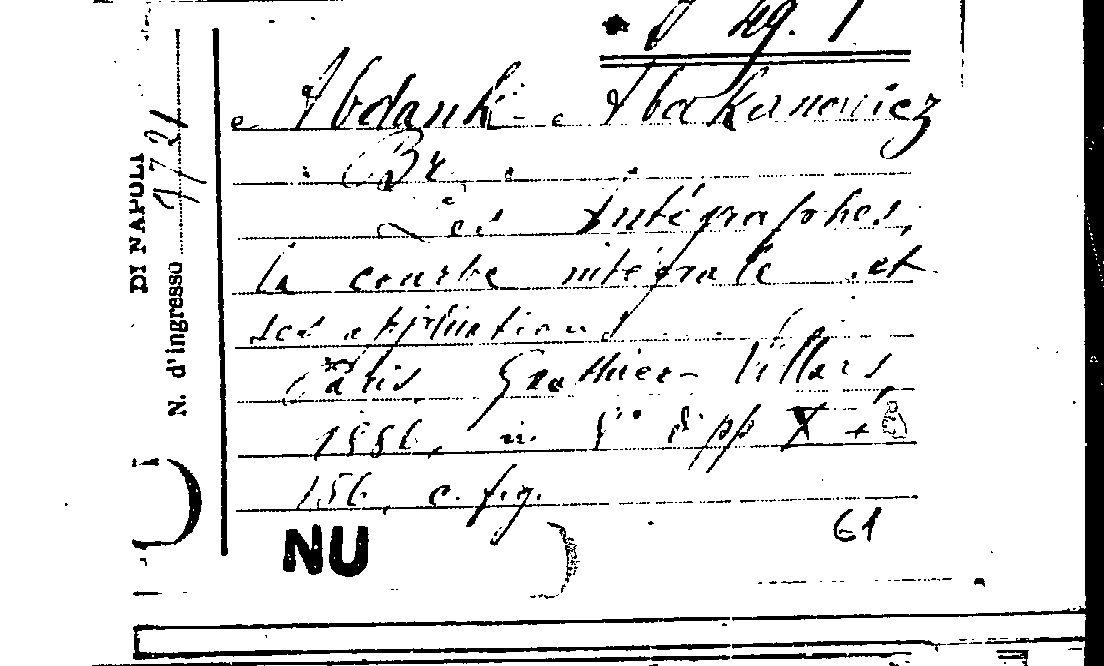 Abdank - Abakanowicz
Br.
Les Intégraphes,
la courbe intégrale et
ses applications
Paris, Gauthier-Villars,
1886, in 8° di pp X +
156, c. fig.
61
NU
DI NAPOLI
N. d'ingresso